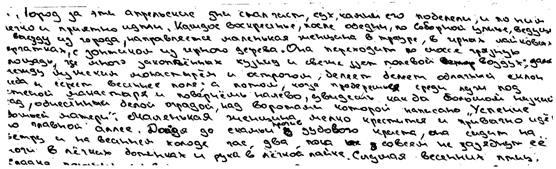 , город за эти апрельские дни стал чист, сух, камни его побелели, и по ним
легко и приятно идти. Каждое воскресенье, после обедни, по Соборной улице, ведущей
выезду из города, направляется маленькая женщина в трауре, в чёрных лайковых
перчатках, с зонтиком из чёрного дерева. Она переходит по шоссе грязную
площадь, где много закопчённых кузниц и свеже дует полевой воздух; далее
между мужским монастырём и острогом, белеет облачный склон
неба и сереет весеннее поле, а потом, когда проберешься среди луж под
стеной монастыря и повернёшь налево, увидишь как бы большой низкий
сад, обнесённый белой оградой, над воротами которой написано „Успение
божьей матери". Маленькая женщина мелко крестится и привычно идёт
по главной аллее. Дойдя до скамьи против дубового креста, она сидит на
ветру и на весеннем холоде час, два, пока совсем не зазябнут её
ноги в лёгких ботинках и рука в лёгкой лайке. Слушая весенних птиц,